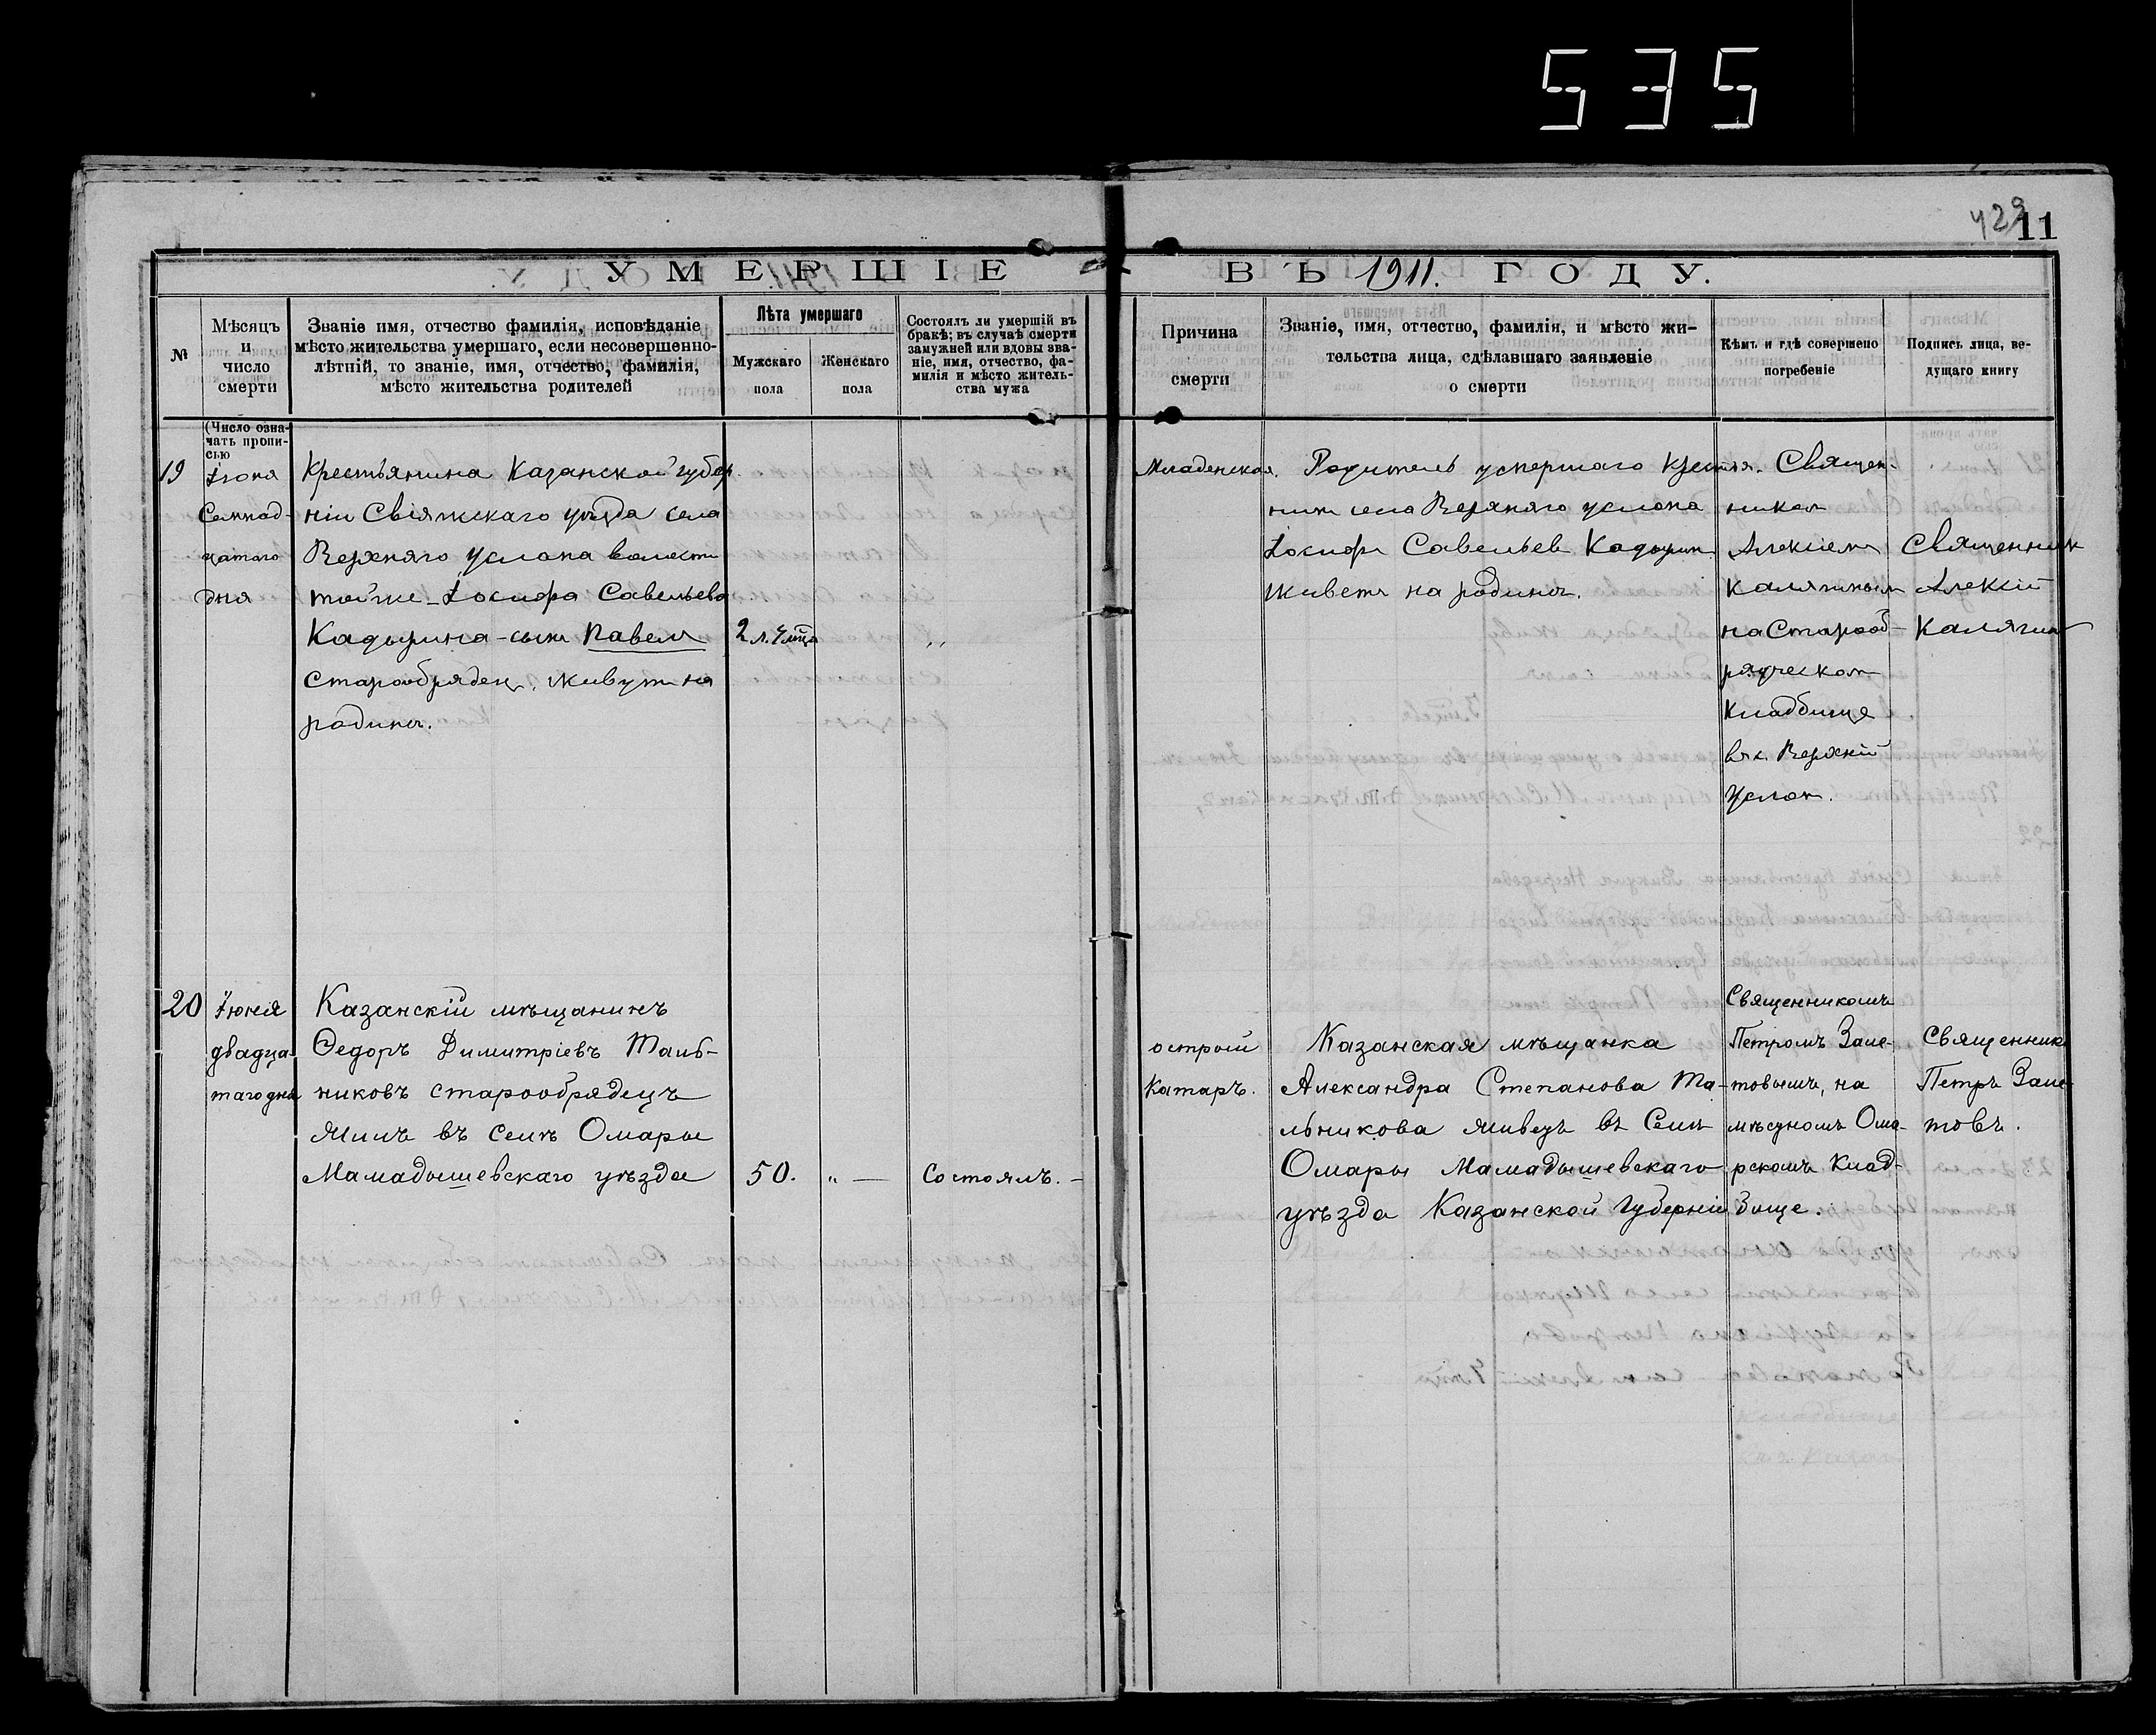 535
429
11
УМЕРШІЕ ВЪ 1911. ГОДУ.
№
Мѣсяцъ и число смерти
Званіе имя, отчество фамилія, исповѣданіе
мѣсто жительства умершаго, если несовершенно-
лѣтній, то званіе, имя, отчество, фамилія,
мѣсто жительства родителей
Лѣта умершаго
Мужскаго пола
Женскаго пола
Состоялъ ли умершій въ
бракѣ; въ случаѣ смерти
замужней или вдовы зва-
ніе, имя, отчество, фа-
милія и мѣсто житель-
ства мужа
Причина смерти
Званіе, имя, отчество, фамилія, и мѣсто жи-
тельства лица, сдѣлавшаго заявленіе
о смерти
Кѣмъ и гдѣ совершено
погребеніе
Подпись лица, ве-
дущаго книгу
(Число озна-
чать пропи-
сью
19
Іюня
Семнад-
цатаго
дня
Крестьянина Казанской губер.
ніи Свіяжскаго уѣзда села
Верхняго Услона волости
тойже - Іосифа Савельева
Кадырина - сынъ Павелъ
старообрядец. живутъ на
родинѣ.
2 л. 4 мца
"
Младенская.
Родитель умершаго крестья-
нинъ села Верхняго услона
Іосифъ Савельев Кадырин
живетъ на родинѣ.
Священ-
ником
Алексіемъ
Калягинымъ
на Старооб-
рядческом
Кладбище
въ с. Верхній
Услон.
Священник
Алексій
Калягин
20
Іюня
двадца-
таго дня
Казанскій мѣщанинъ
Ѳедоръ Димитріевъ Таль-
никовъ старообрядецъ
Жилъ въ Селѣ Омары
Мамадышевскаго уѣзда
50.
" —
Состоялъ. -
острый
Катаръ.
Казанская мѣщанка
Александра Степанова Та-
льникова живетъ въ Селѣ
Омары Мамадышевскаго
уѣзда Казанской Губерніи
Священникомъ
Петромъ Зале-
товымъ, на
мѣстномъ Ома-
рскомъ Клад-
бище.
Священникъ
Петръ Зале-
товъ.